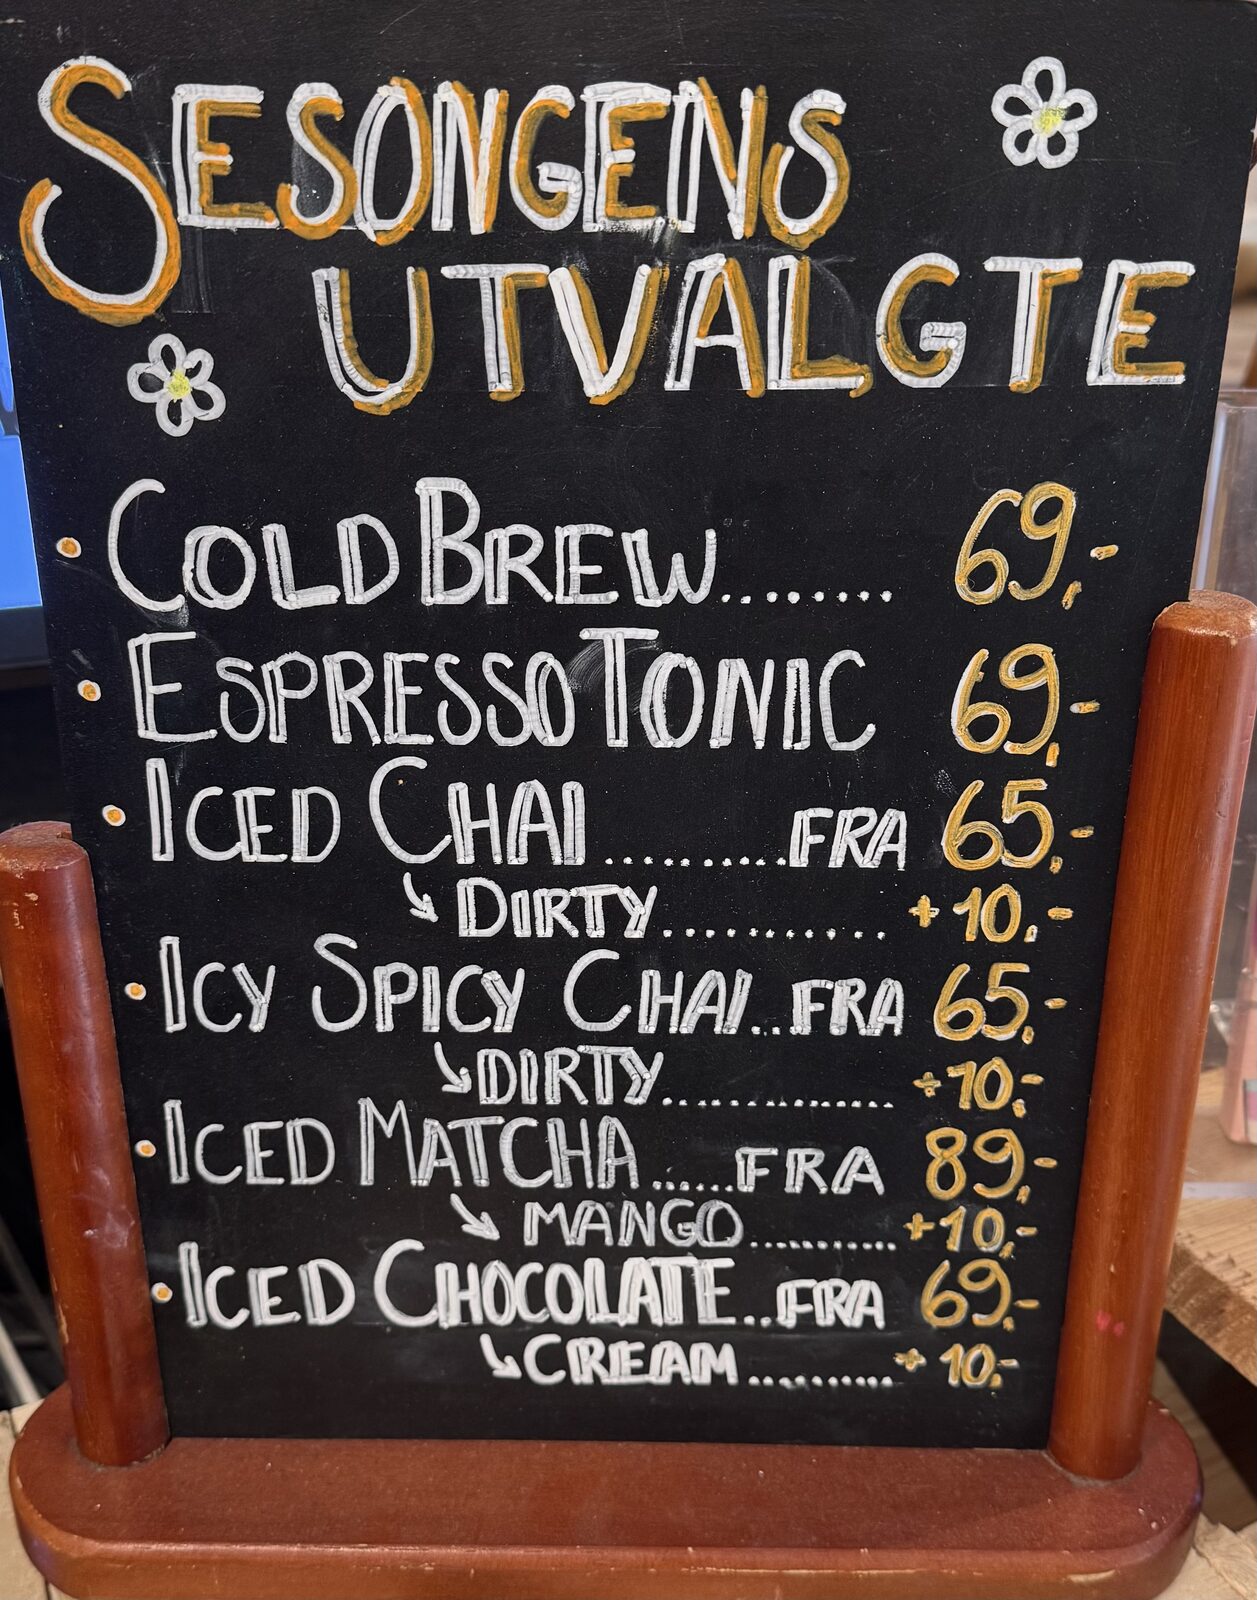 SESONGENS
UTVALGTE
• COLD BREW........ 69,-
• ESPRESSO TONIC 69,-
• ICED CHAI ..........FRA 65,-
↳ DIRTY............. +10,-
• ICY SPICY CHAI..FRA 65,-
↳ DIRTY............... +10,-
• ICED MATCHA ......FRA 89,-
↳ MANGO........... +10,-
• ICED CHOCOLATE..FRA 69,-
↳ CREAM ........... + 10,-